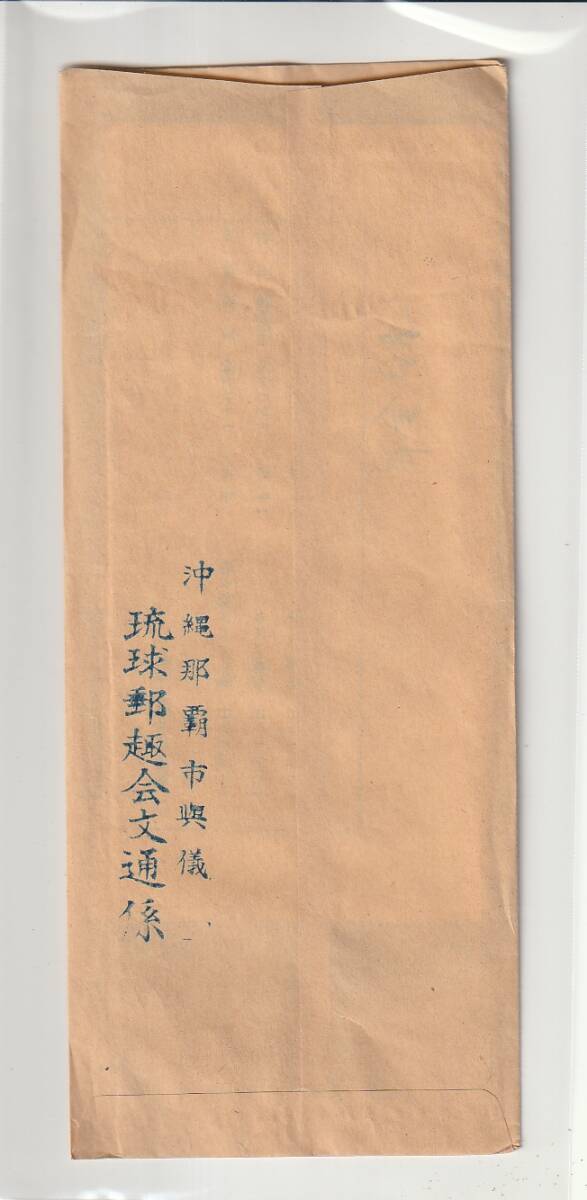 沖縄那覇市與儀
琉球郵趣会文通係